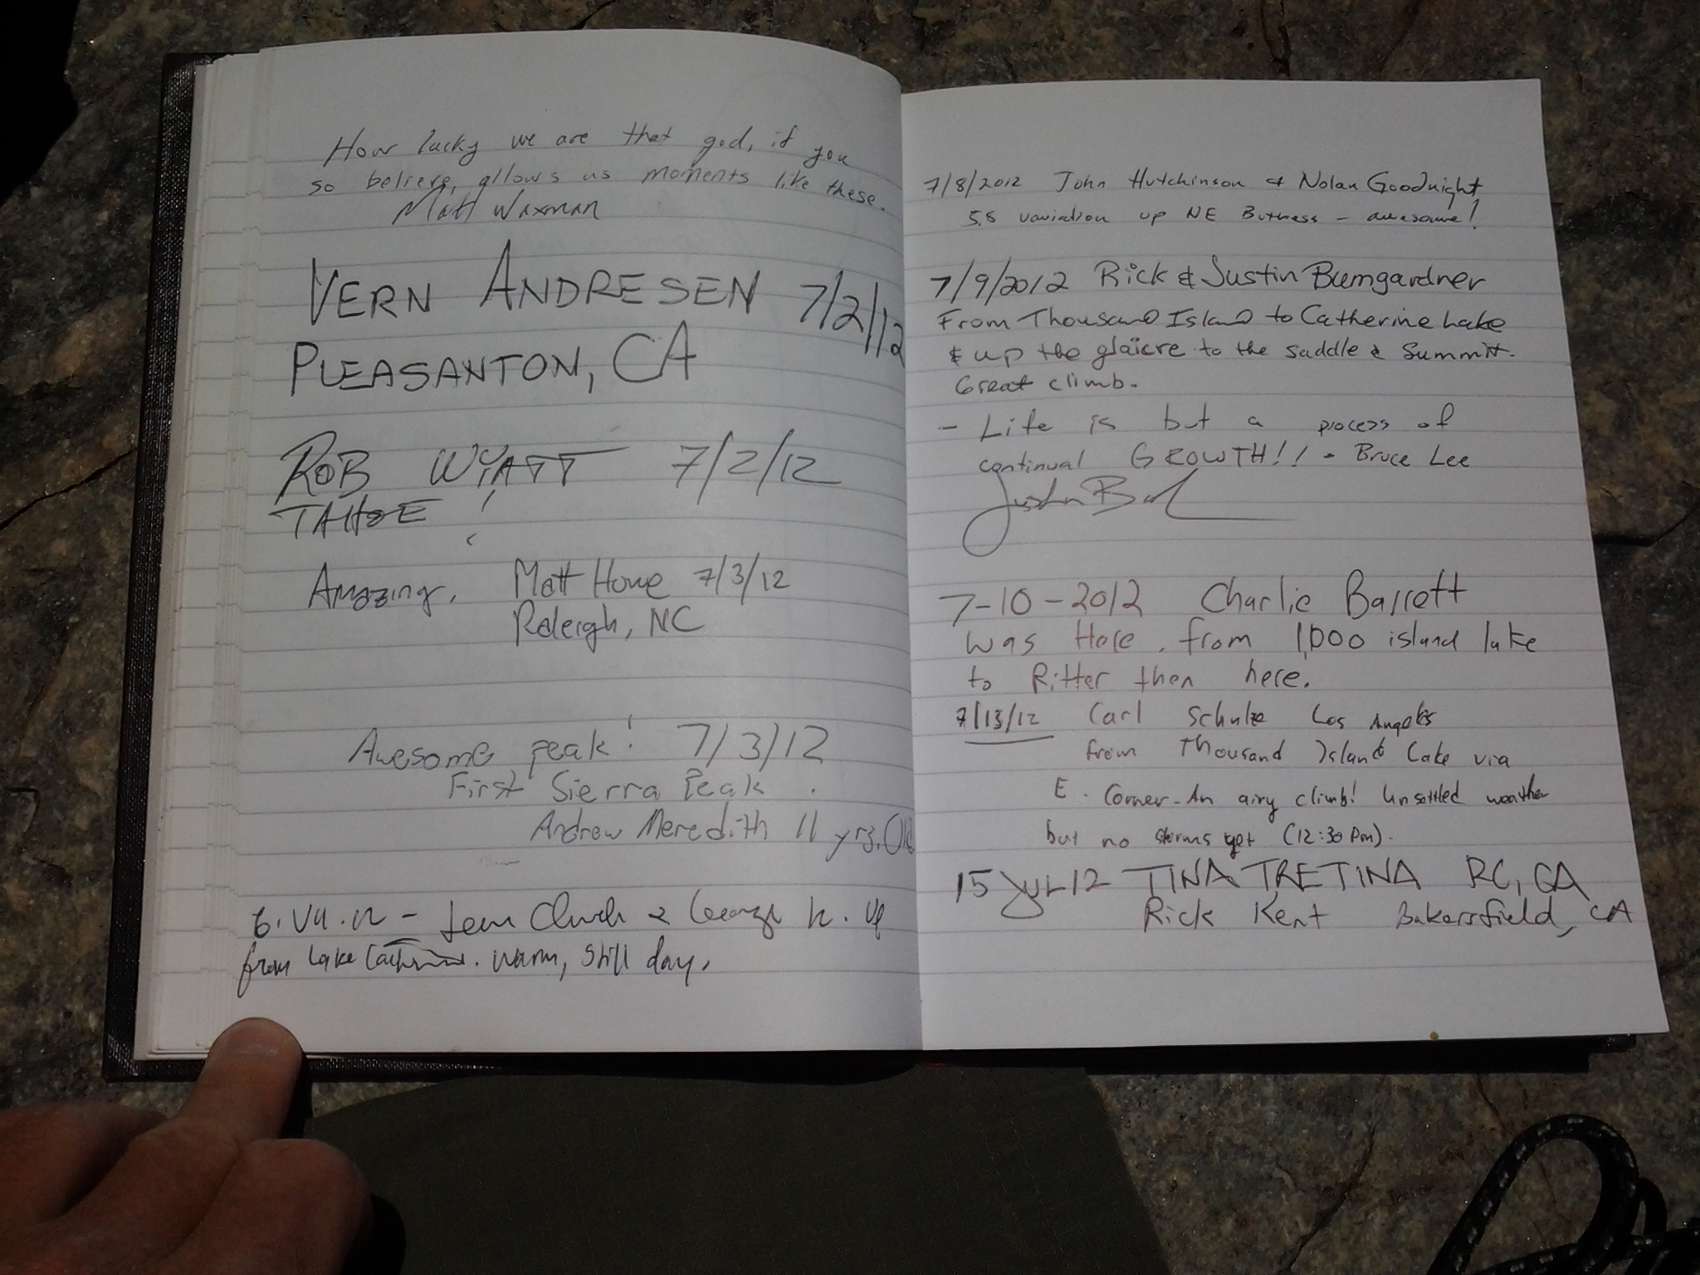 How lucky we are that god, if you
so believe, allows us moments like these.
Matt Waxman
VERN ANDRESEN 7/2/12
PLEASANTON, CA
ROB WYATT 7/2/12
TAHOE!
Amazing. Matt Howe 7/3/12
Raleigh, NC
Awesome peak! 7/3/12
First Sierra Peak.
Andrew Meredith 11 yrs. Old
6.VII.12 - & George K. up
from Lake Catherine. warm, still day.
7/8/2012 John Hutchinson & Nolan Goodnight
5.5 variation up NE Butress - awesome!
7/9/2012 Rick & Justin Bumgardner
From Thousand Island to Catherine Lake
& up the glaicre to the saddle & summit.
Great climb.
- Life is but a process of
continual GROWTH!! - Bruce Lee
7-10-2012 Charlie Barrett
was Here. from 1,000 island lake
to Ritter then here.
7/13/12 Carl Schulze Los Angeles
from Thousand Island Lake via
E. Corner - An airy climb! Unsettled weather
but no storms yet (12:30 pm).
15 JUL 12 TINA TRETINA RC, CA
Rick Kent Bakersfield, CA